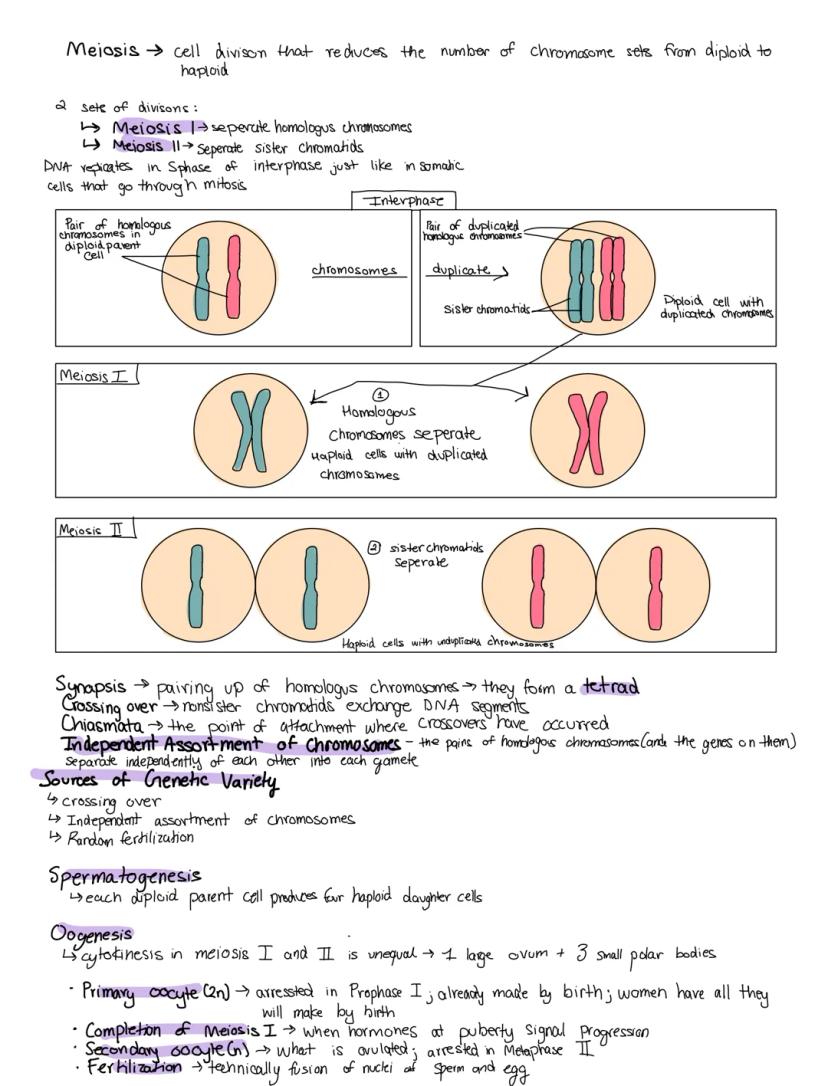 Meiosis → cell divison that reduces the number of chromosome sets from diploid to
haploid
2 sets of divisons:
↳ Meiosis I → seperate homologus chromosomes
↳ Meiosis II → seperate sister chromatids
DNA replicates in Sphase of interphase just like in somatic
cells that go through mitosis
Interphase
Pair of homologous
chromosomes in
diploid parent
cell
chromosomes
Pair of duplicated
homologus chromosomes
duplicate
Sister chromatids
Diploid cell with
duplicated chromosomes
Meiosis I
①
Homologous
chromosomes seperate
Haploid cells with duplicated
chromosomes
Meiosis II
② sister chromatids
seperate
Haploid cells with unduplicated chromosomes
Synapsis → pairing up of homologus chromosomes → they form a tetrad
Crossing over → nonsister chromatids exchange DNA segments
Chiasmata → the point of attachment where crossovers have occurred
Independent Assortment of Chromosomes - the pairs of homologous chromosomes (and the genes on them)
separate independently of each other into each gamete
Sources of Genetic Variety
↳ crossing over
↳ Independent assortment of chromosomes
↳ Random fertilization
Spermatogenesis
↳ each diploid parent cell produces four haploid daughter cells
Oogenesis
↳ cytokinesis in meiosis I and II is unequal → 1 large ovum + 3 small polar bodies
· Primary oocyte (2n) → arressted in Prophase I; already made by birth; women have all they
will make by birth
· Completion of Meiosis I → when hormones at puberty signal progression
· Secondary oocyte (n) → what is ovulated; arrested in Metaphase II
· Fertilization → technically fusion of nuclei of sperm and egg